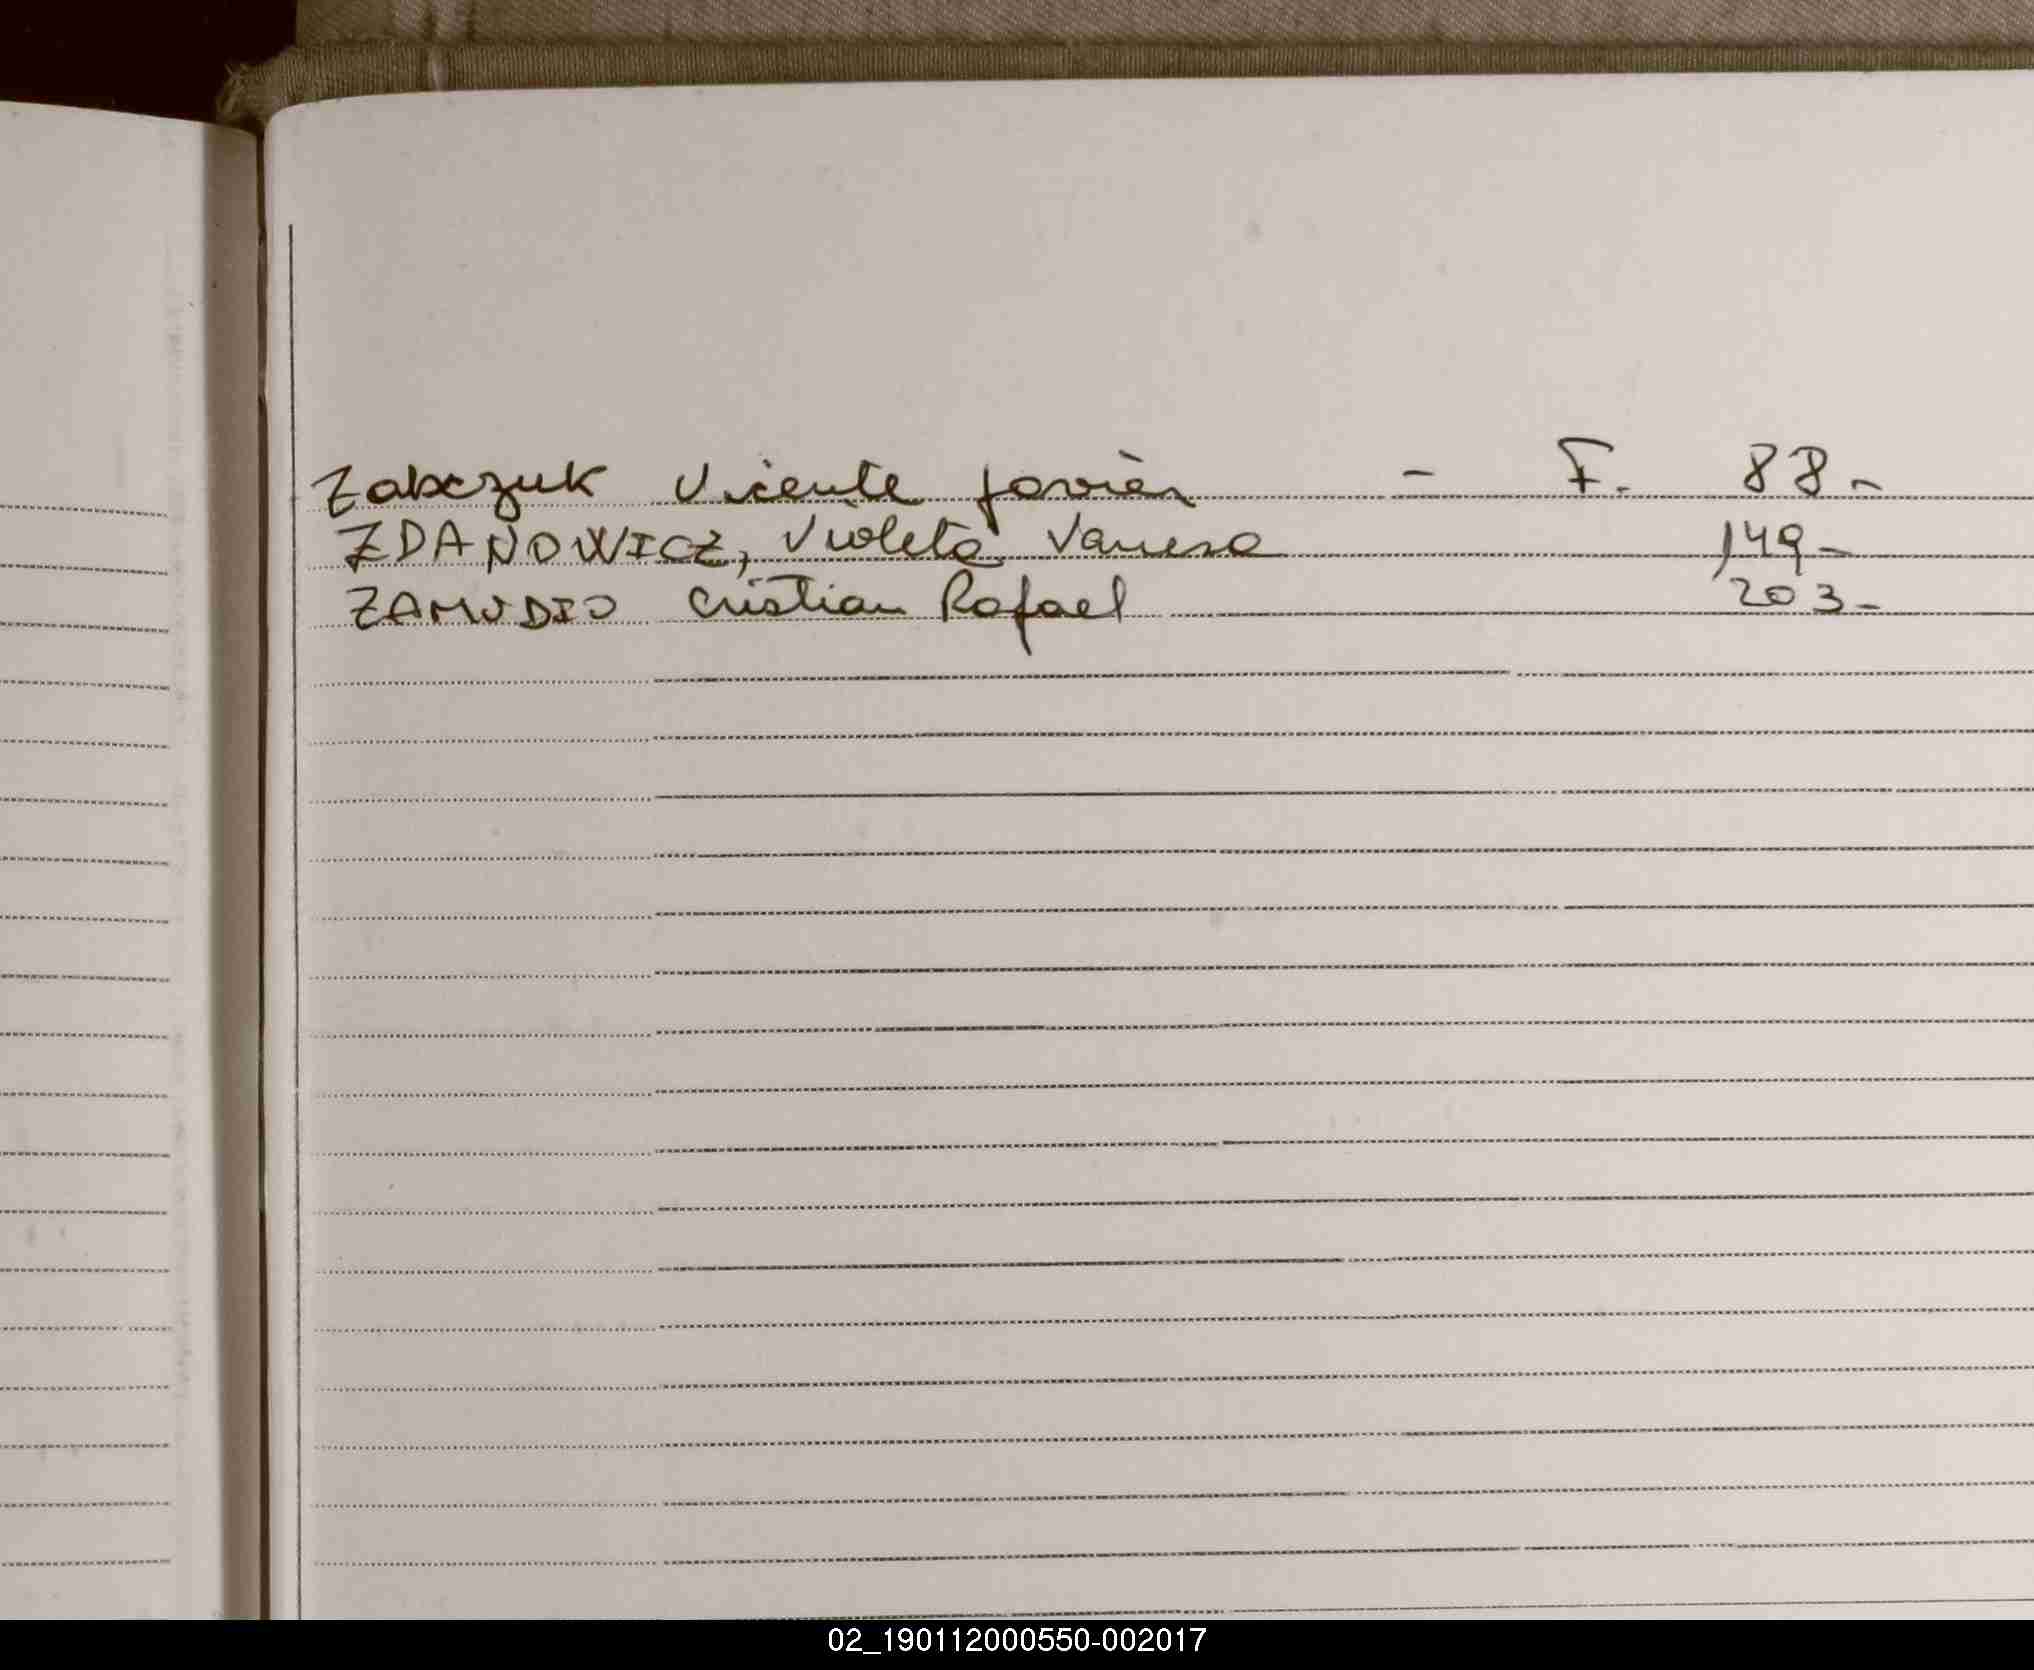 Zabczuk Vicente Javier - F. 88-
ZDANOWICZ, Violeta Vanesa 149-
ZAMUDIO Cristian Rafael 203-
02_190112000550-002017